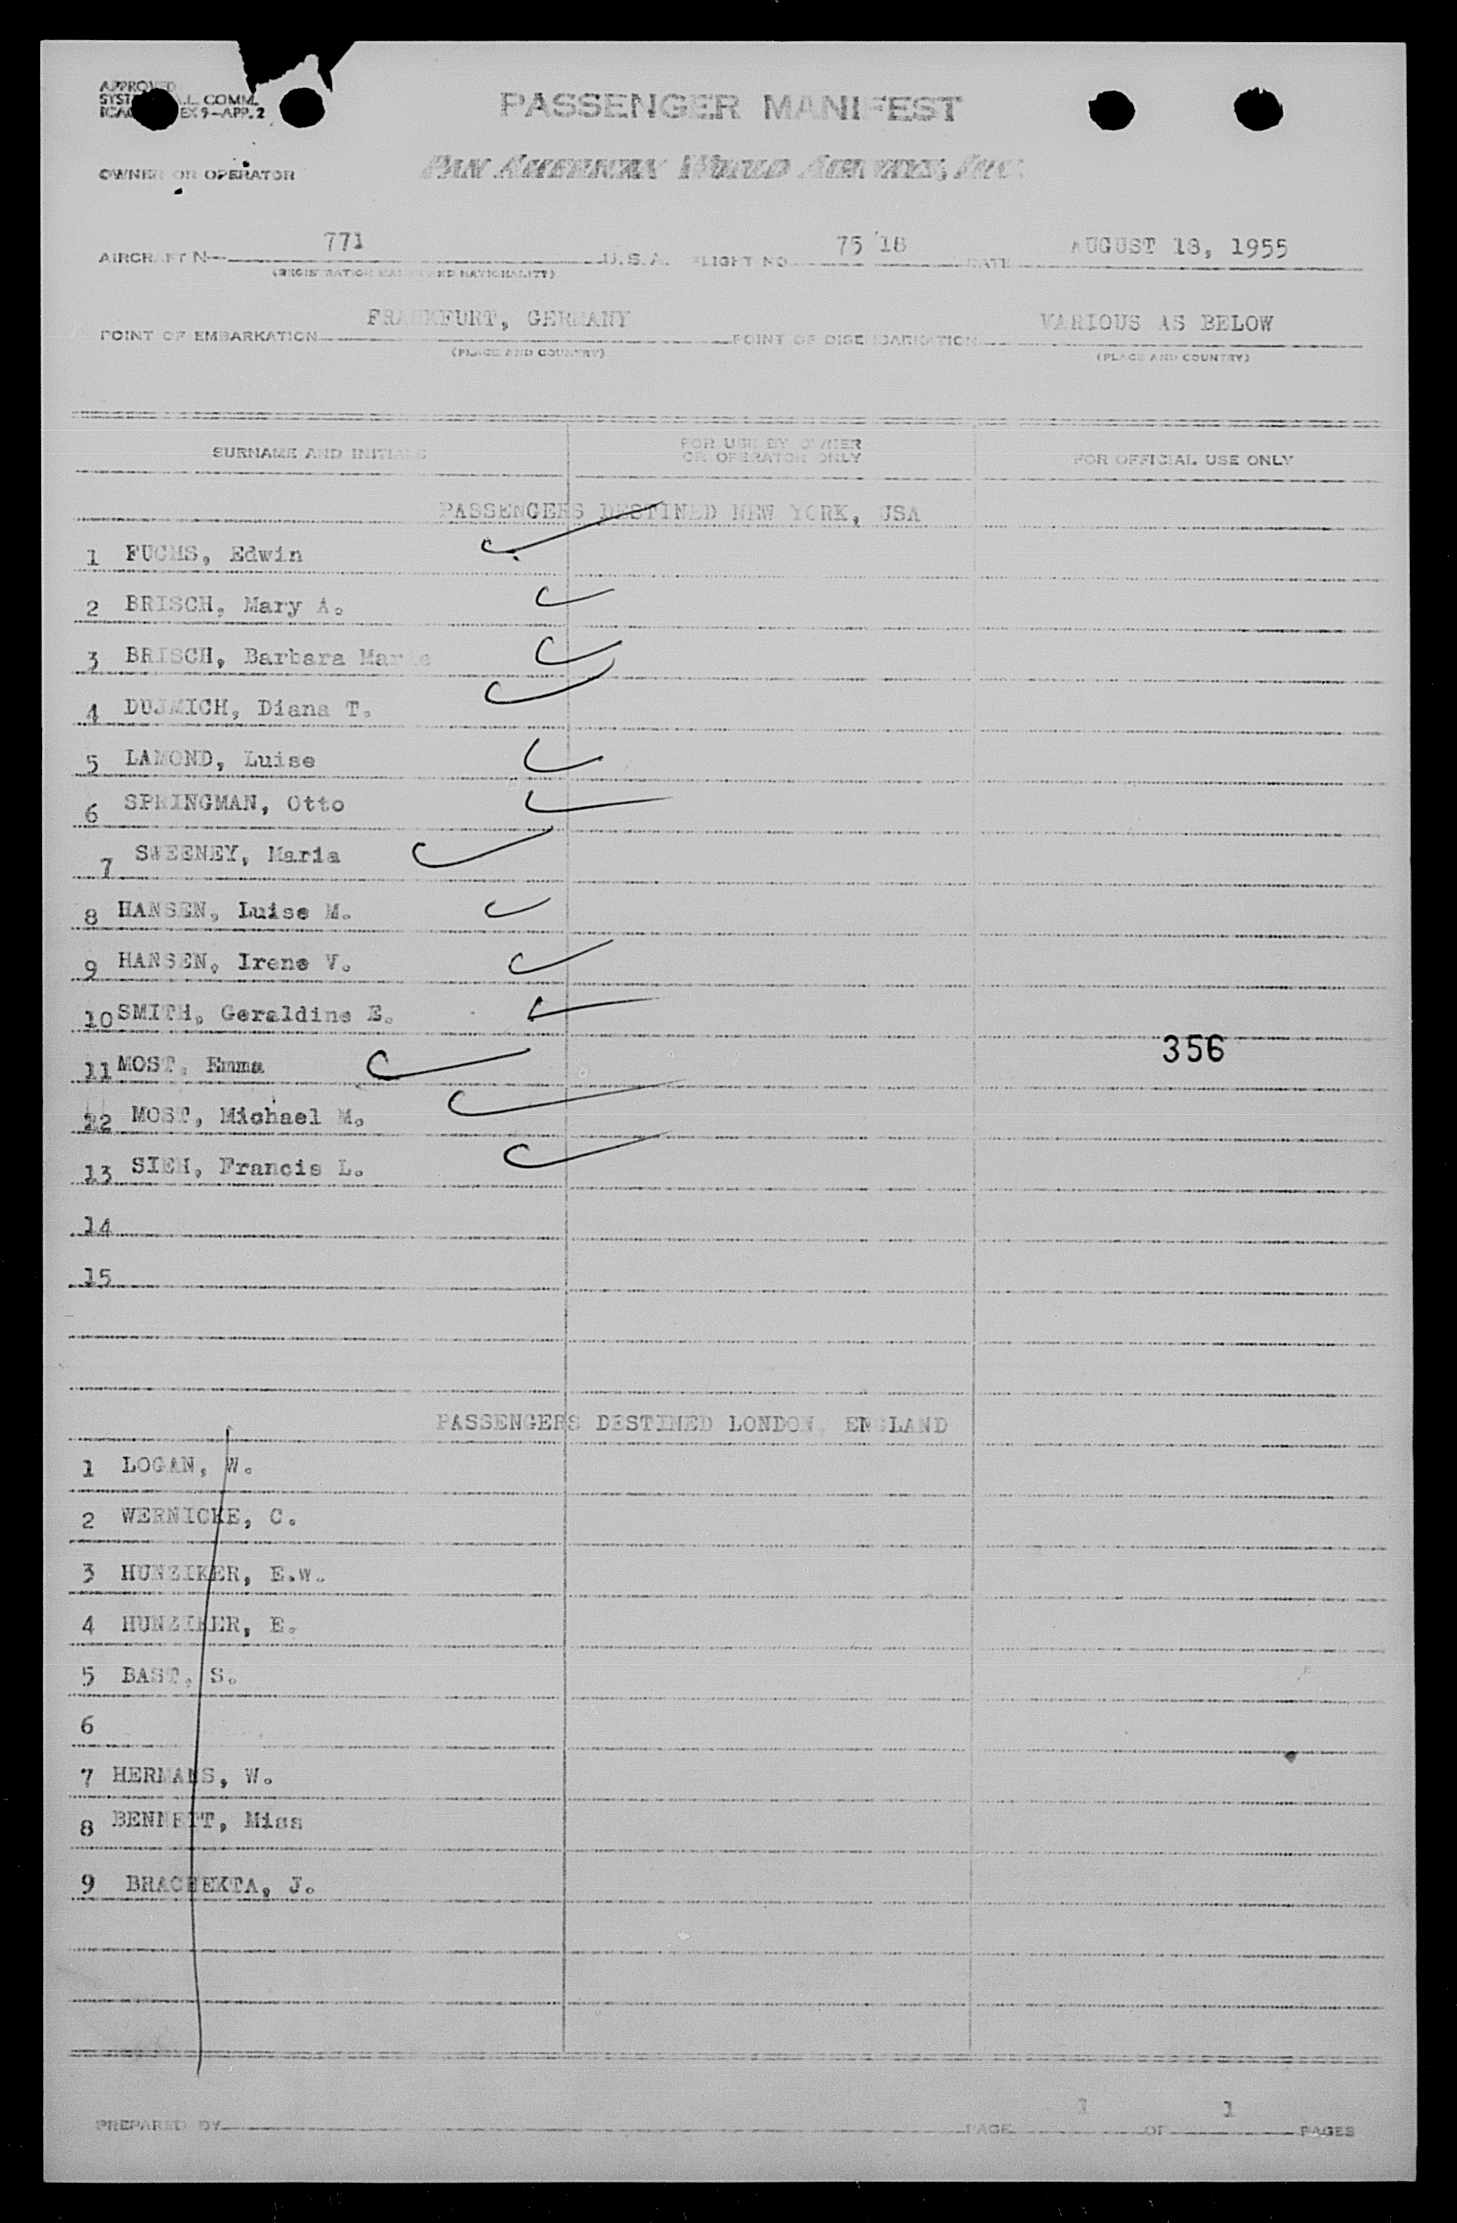 APPROVED
SYST L. COMM.
ICAO EX 9-APP. 2
PASSENGER MANIFEST
OWNER OR OPERATOR
PAN AMERICAN WORLD AIRWAYS, INC.
AIRCRAFT N- 771 U.S.A. FLIGHT NO 75 18 DATE AUGUST 18, 1955
(REGISTRATION MARKS AND NATIONALITY)
POINT OF EMBARKATION FRANKFURT, GERMANY POINT OF DISEMBARKATION VARIOUS AS BELOW
(PLACE AND COUNTRY) (PLACE AND COUNTRY)
SURNAME AND INITIALS FOR USE BY OWNER OR OPERATOR ONLY FOR OFFICIAL USE ONLY
PASSENGERS DESTINED NEW YORK, USA
1 FUCHS, Edwin
2 BRISCH, Mary A.
3 BRISCH, Barbara Marie
4 DUJMICH, Diana T.
5 LAMOND, Luise
6 SPRINGMAN, Otto
7 SWEENEY, Maria
8 HANSEN, Luise M.
9 HANSEN, Irene V.
10 SMITH, Geraldine E.
356
11 MOST, Emma
12 MOST, Michael M.
13 SIEH, Francis L.
14
15
PASSENGERS DESTINED LONDON, ENGLAND
1 LOGAN, W.
2 WERNICKE, C.
3 HUNZIKER, E.W.
4 HUNZIKER, E.
5 BAST, S.
6
7 HERMANS, W.
8 BENNETT, Miss
9 BRACHEKTA, J.
PREPARED BY PAGE 1 OF 1 PAGES